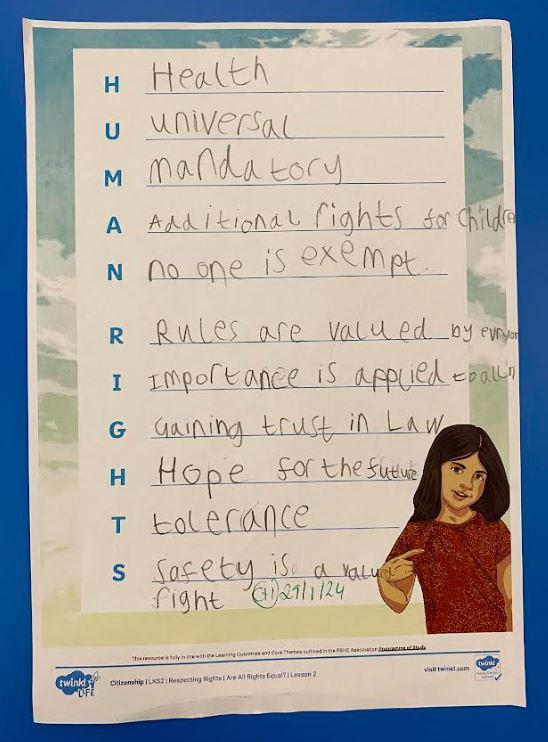 H Health
U universal
M mandatory
A Additional rights for Childre
N no one is exempt.
R Rules are valued by evryon
I Importance is applied to all
G Gaining trust in Law
H Hope for the future
T tolerance
S Safety is a valued
right 29/1/24
This resource is fully in line with the Learning Outcomes and Core Themes outlined in the PSHE Association Programme of Study.
twinkl LIFE
Citizenship | LKS2 | Respecting Rights | Are All Rights Equal? | Lesson 2
visit twinkl.com
twinkl